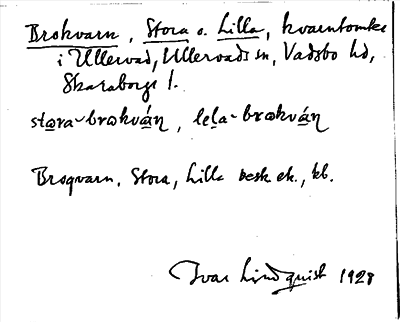 Brokvarn, Stora o. Lilla, kvarntomter
i Ullervad, Ullervads sn, Vadsbo hd,
Skaraborgs l.
stωra-brωkván, lela-brωkván
Broqvarn, Stora, Lilla besk ek., kb.
Ivar Lindquist 1928